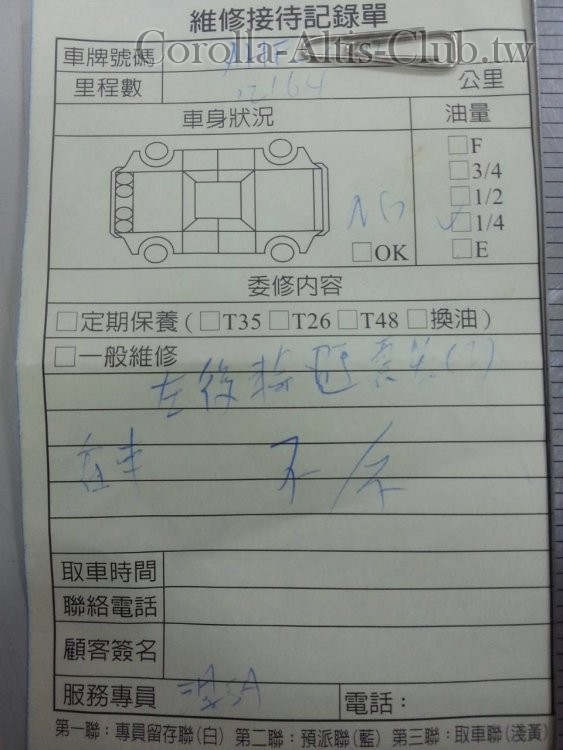 維修接待記錄單
Corolla-Altis-Club.tw
車牌號碼
里程數 公里
車身狀況 油量
□F
□3/4
□1/2
□1/4
□E
NG
□OK
委修內容
□定期保養(□T35 □T26 □T48 □換油)
□一般維修
左後輪
不
取車時間
聯絡電話
顧客簽名
服務專員 電話:
第一聯:專員留存聯(白) 第二聯:預派聯(藍) 第三聯:取車聯(淺黃)